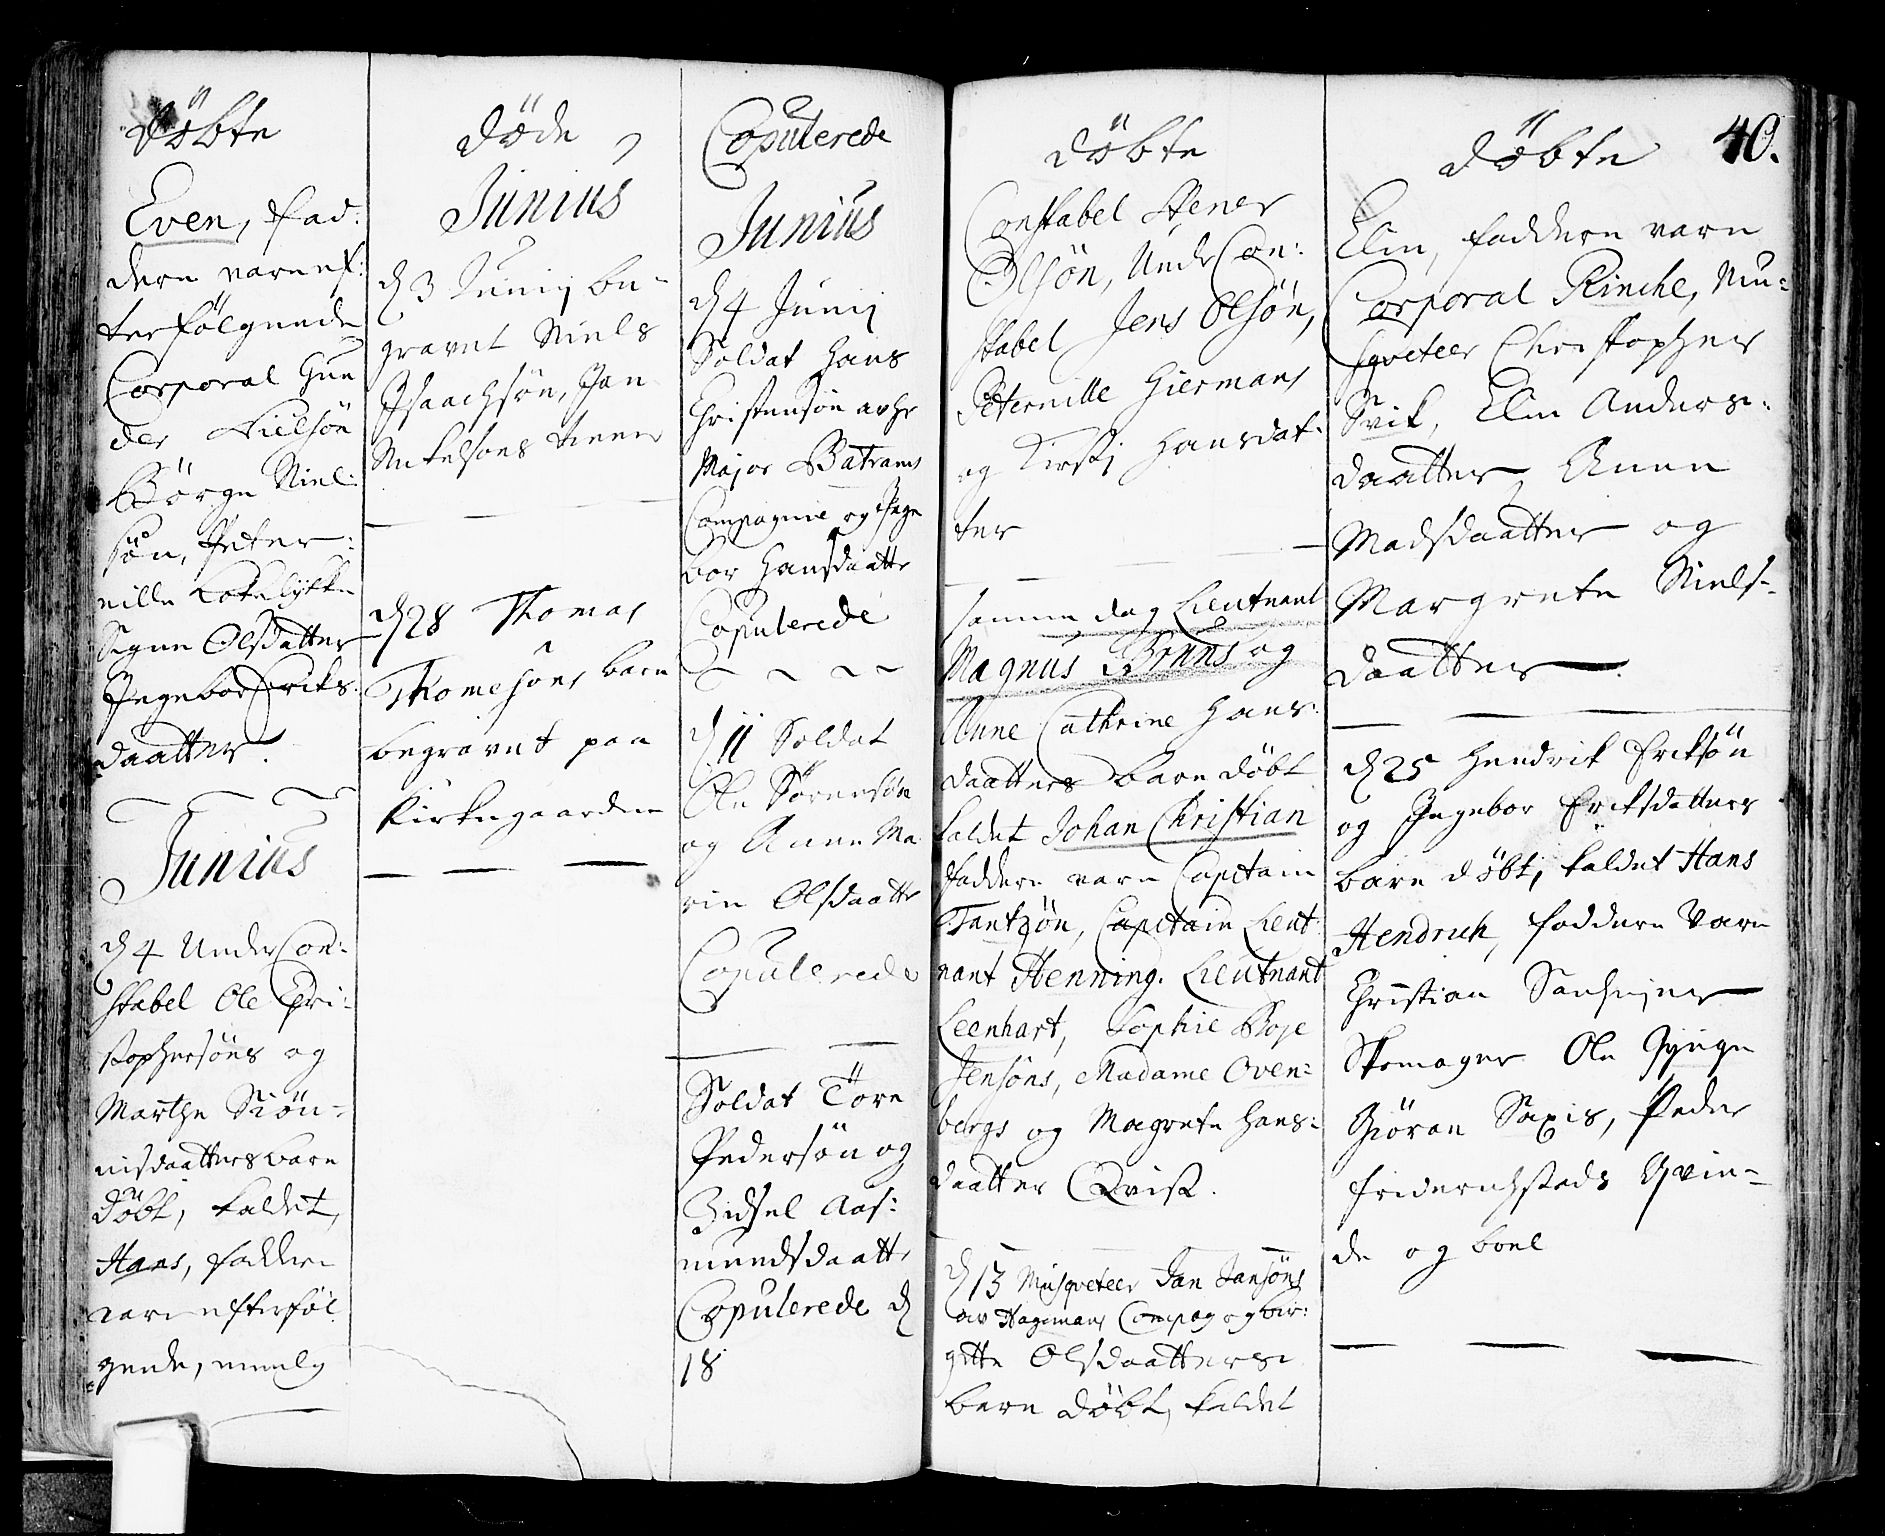 Döbte
Even, fad:
dere vare ef:
terfölgende
Corporal Gun
der Nielsön
Börge Niel:
sön, Peter:
nille
Signe Olsdatter
Ingebor Eriks:
daatter.
Junius
D 4 Under Con:
stabel Ole Chri:
stophersöns og
Marthe Siön-
nisdaatters barn
döbt, kaldet,
Hans, faddere
vare efterföl
gende, nemlig
Döde
Junius
D 3 Junij be-
gravet Niels
Isaachsön, Jan
Mikelsons
D 28 Thomas
Thomesöns barn
begravet paa
Kirkegaarden
Copulerede
Junius
D 4 Junij
Soldat Hans
Christensön av hr
Major Batrams
Compagnie og Inge
bor Hansdaatt
Copulerede
D 11 Soldat
Ole Sörensön
og Anne Ma
rie Olsdaatt
Copulerede
Soldat Töre
Pedersön og
Zidsel Aas:
mundsdaatt
Copulerede D
18
döbte
Constabel Stener
Olsön, Under Con:
stabel Jens Olsön,
Peternille Giermans
og Kirstj Hansdat:
ter
samme dag Lieutnant
Magnus Bruns og
Anne Cathrine Hans:
daatters barn döbt
kaldet Johan Christian
faddere vare Capitain
Tantzön, Capitain Lieut
nant Henning. Lieutnant
Leenhart, Sophie Boje
Jensöns, Madame Oven:
bergs og Magrete Hans:
daatter Qvist.
D 13 Musqveteer Jan Jansöns
av Hagemans Compag og bir:
gitte Olsdaatters
barn döbt, kaldet
döbte 40.
Elin, faddere vare
Corporal Rinche, Mu:
sqveteer Christopher
Svik, Elin Anders:
daatter, Anne
Madsdaatter og
Margrete Niels-
daatter
D 25 Hendrik Eriksön
og Ingebor Eriksdatters
barn döbt, kaldet Hans
Hendrich, faddere vare
Christian
Skomager Ole
Giöran Saxis, Peder
Friderichstads Qvin-
de og boel